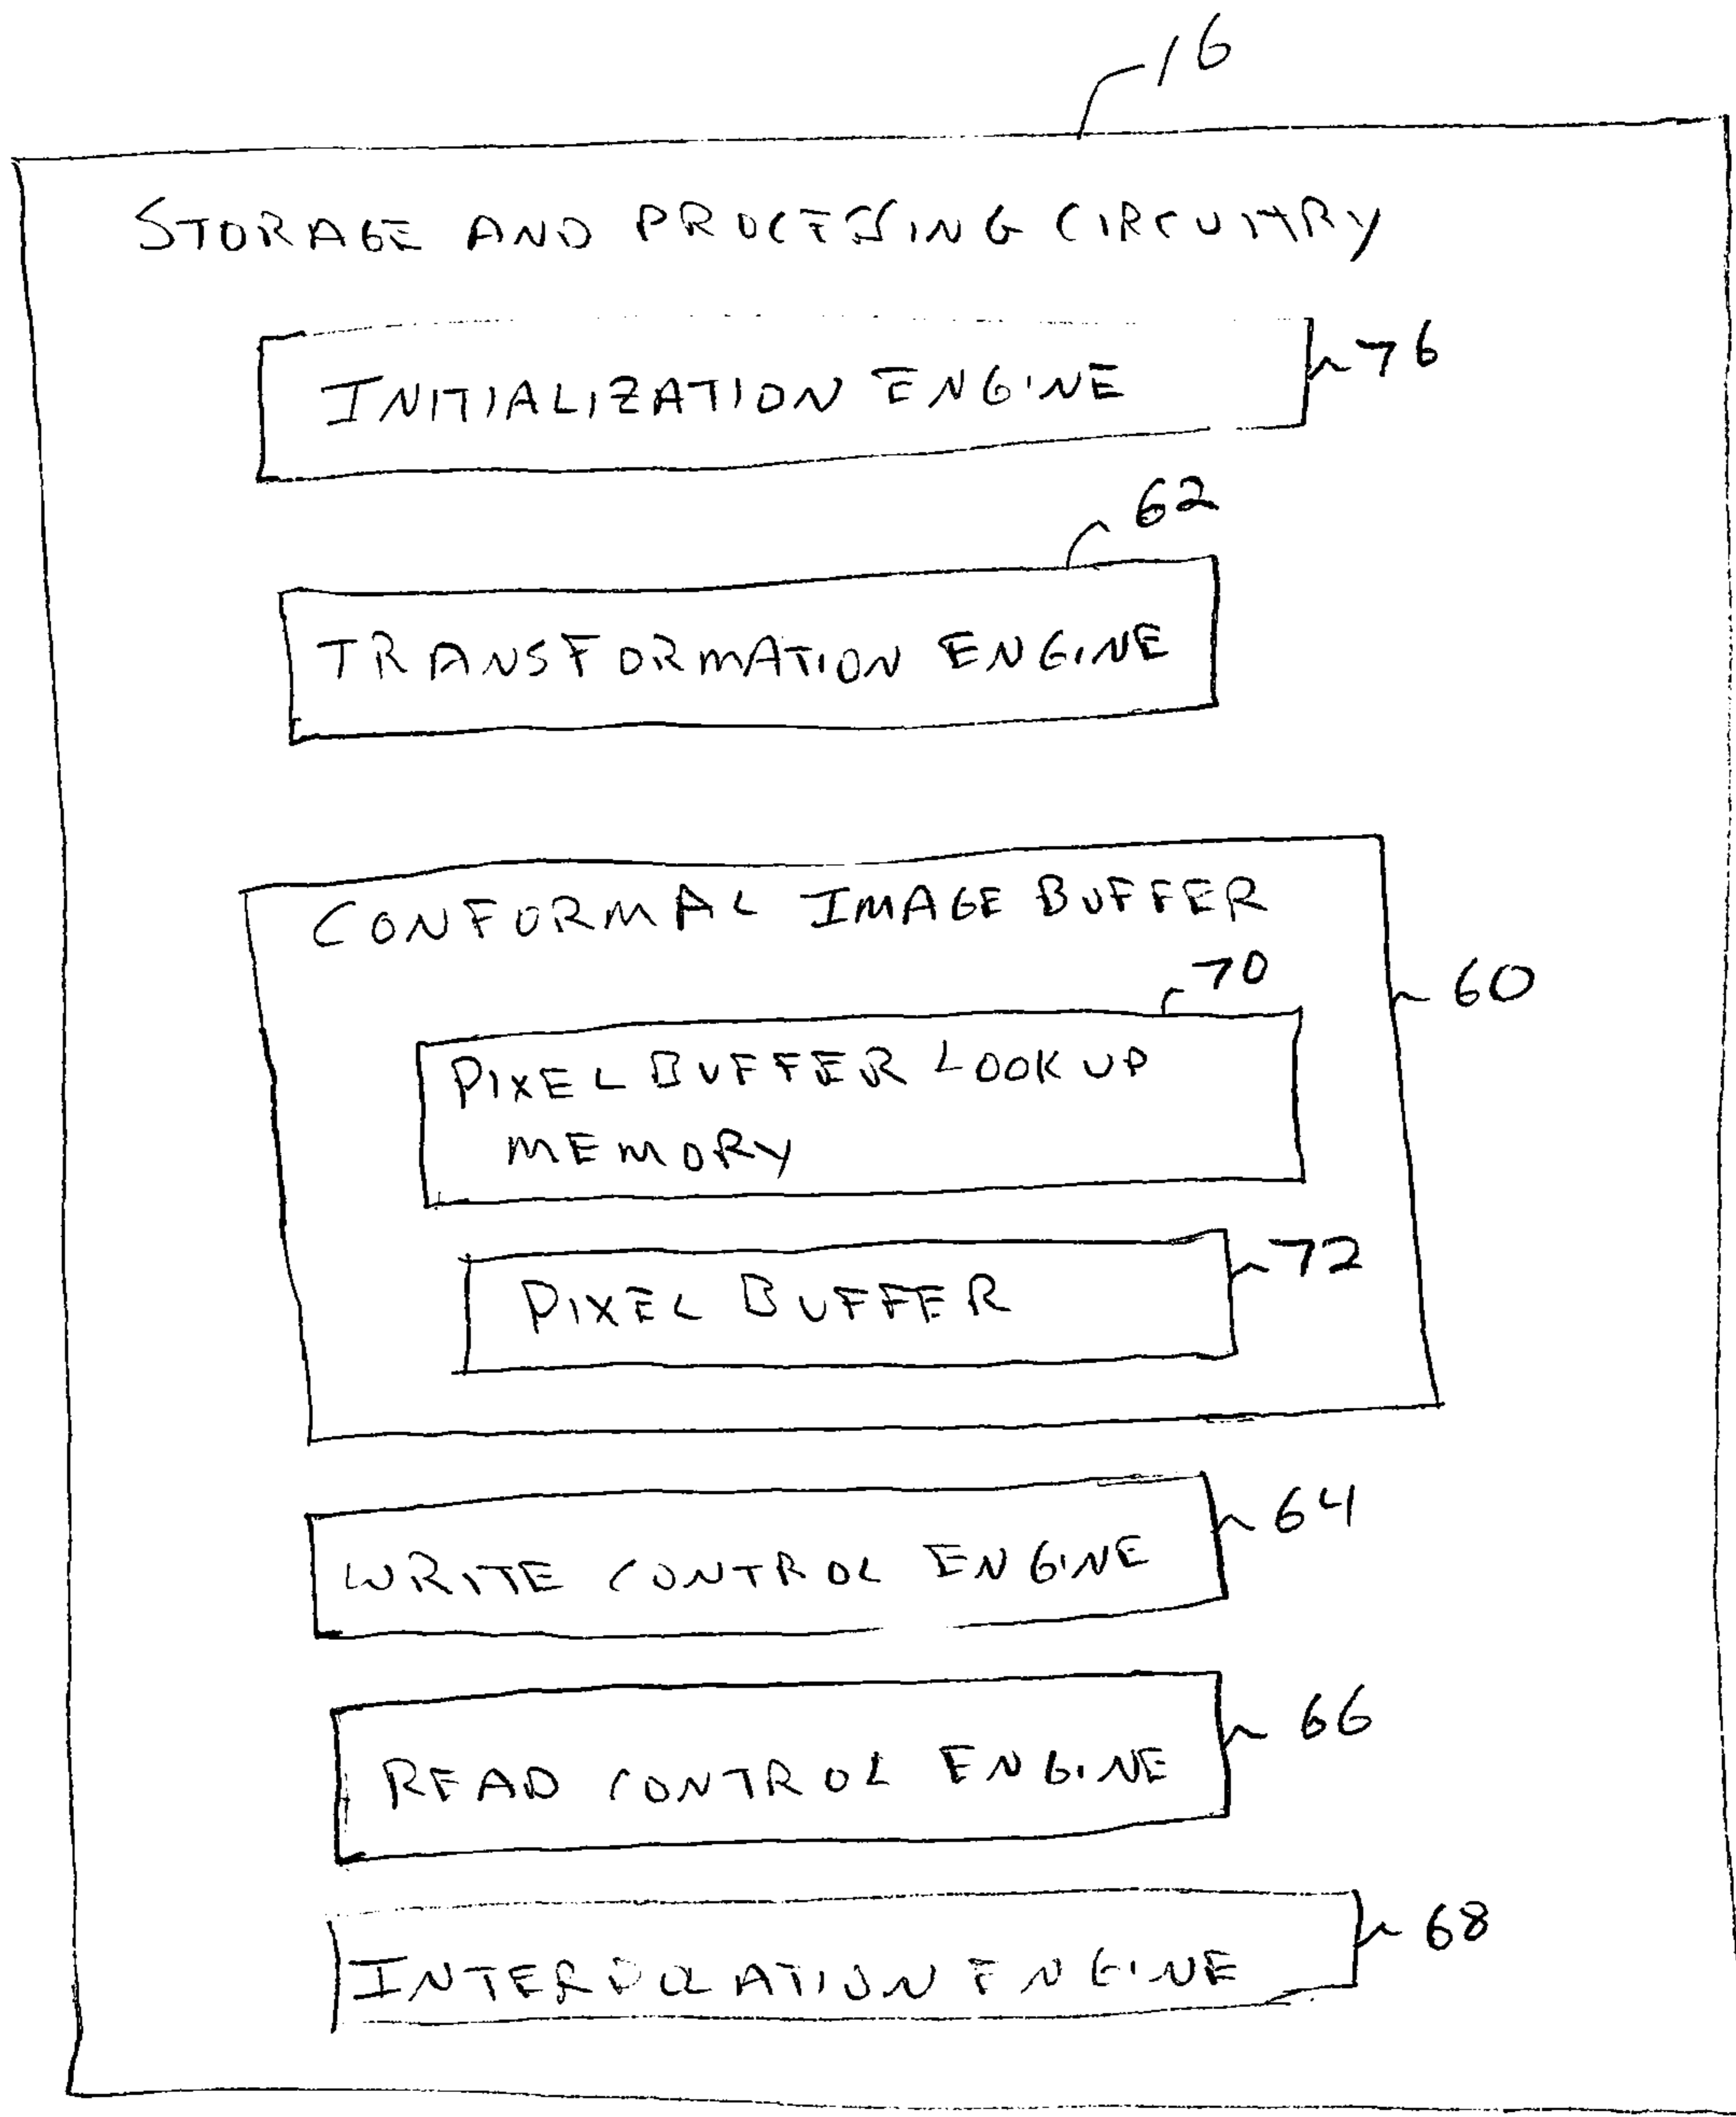 16
STORAGE AND PROCESSING CIRCUITRY
INITIALIZATION ENGINE
76
62
TRANSFORMATION ENGINE
CONFORMAL IMAGE BUFFER
70
60
PIXEL BUFFER LOOKUP
MEMORY
72
PIXEL BUFFER
64
WRITE CONTROL ENGINE
66
READ CONTROL ENGINE
68
INTERPOLATION ENGINE